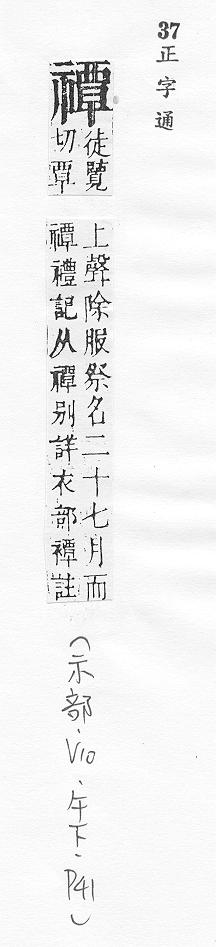 37
正字通
禫
徒覽
切覃
上聲除服祭名二十七月而
禫禮記从禫别詳衣部註
（示部、V10、午下、P41）